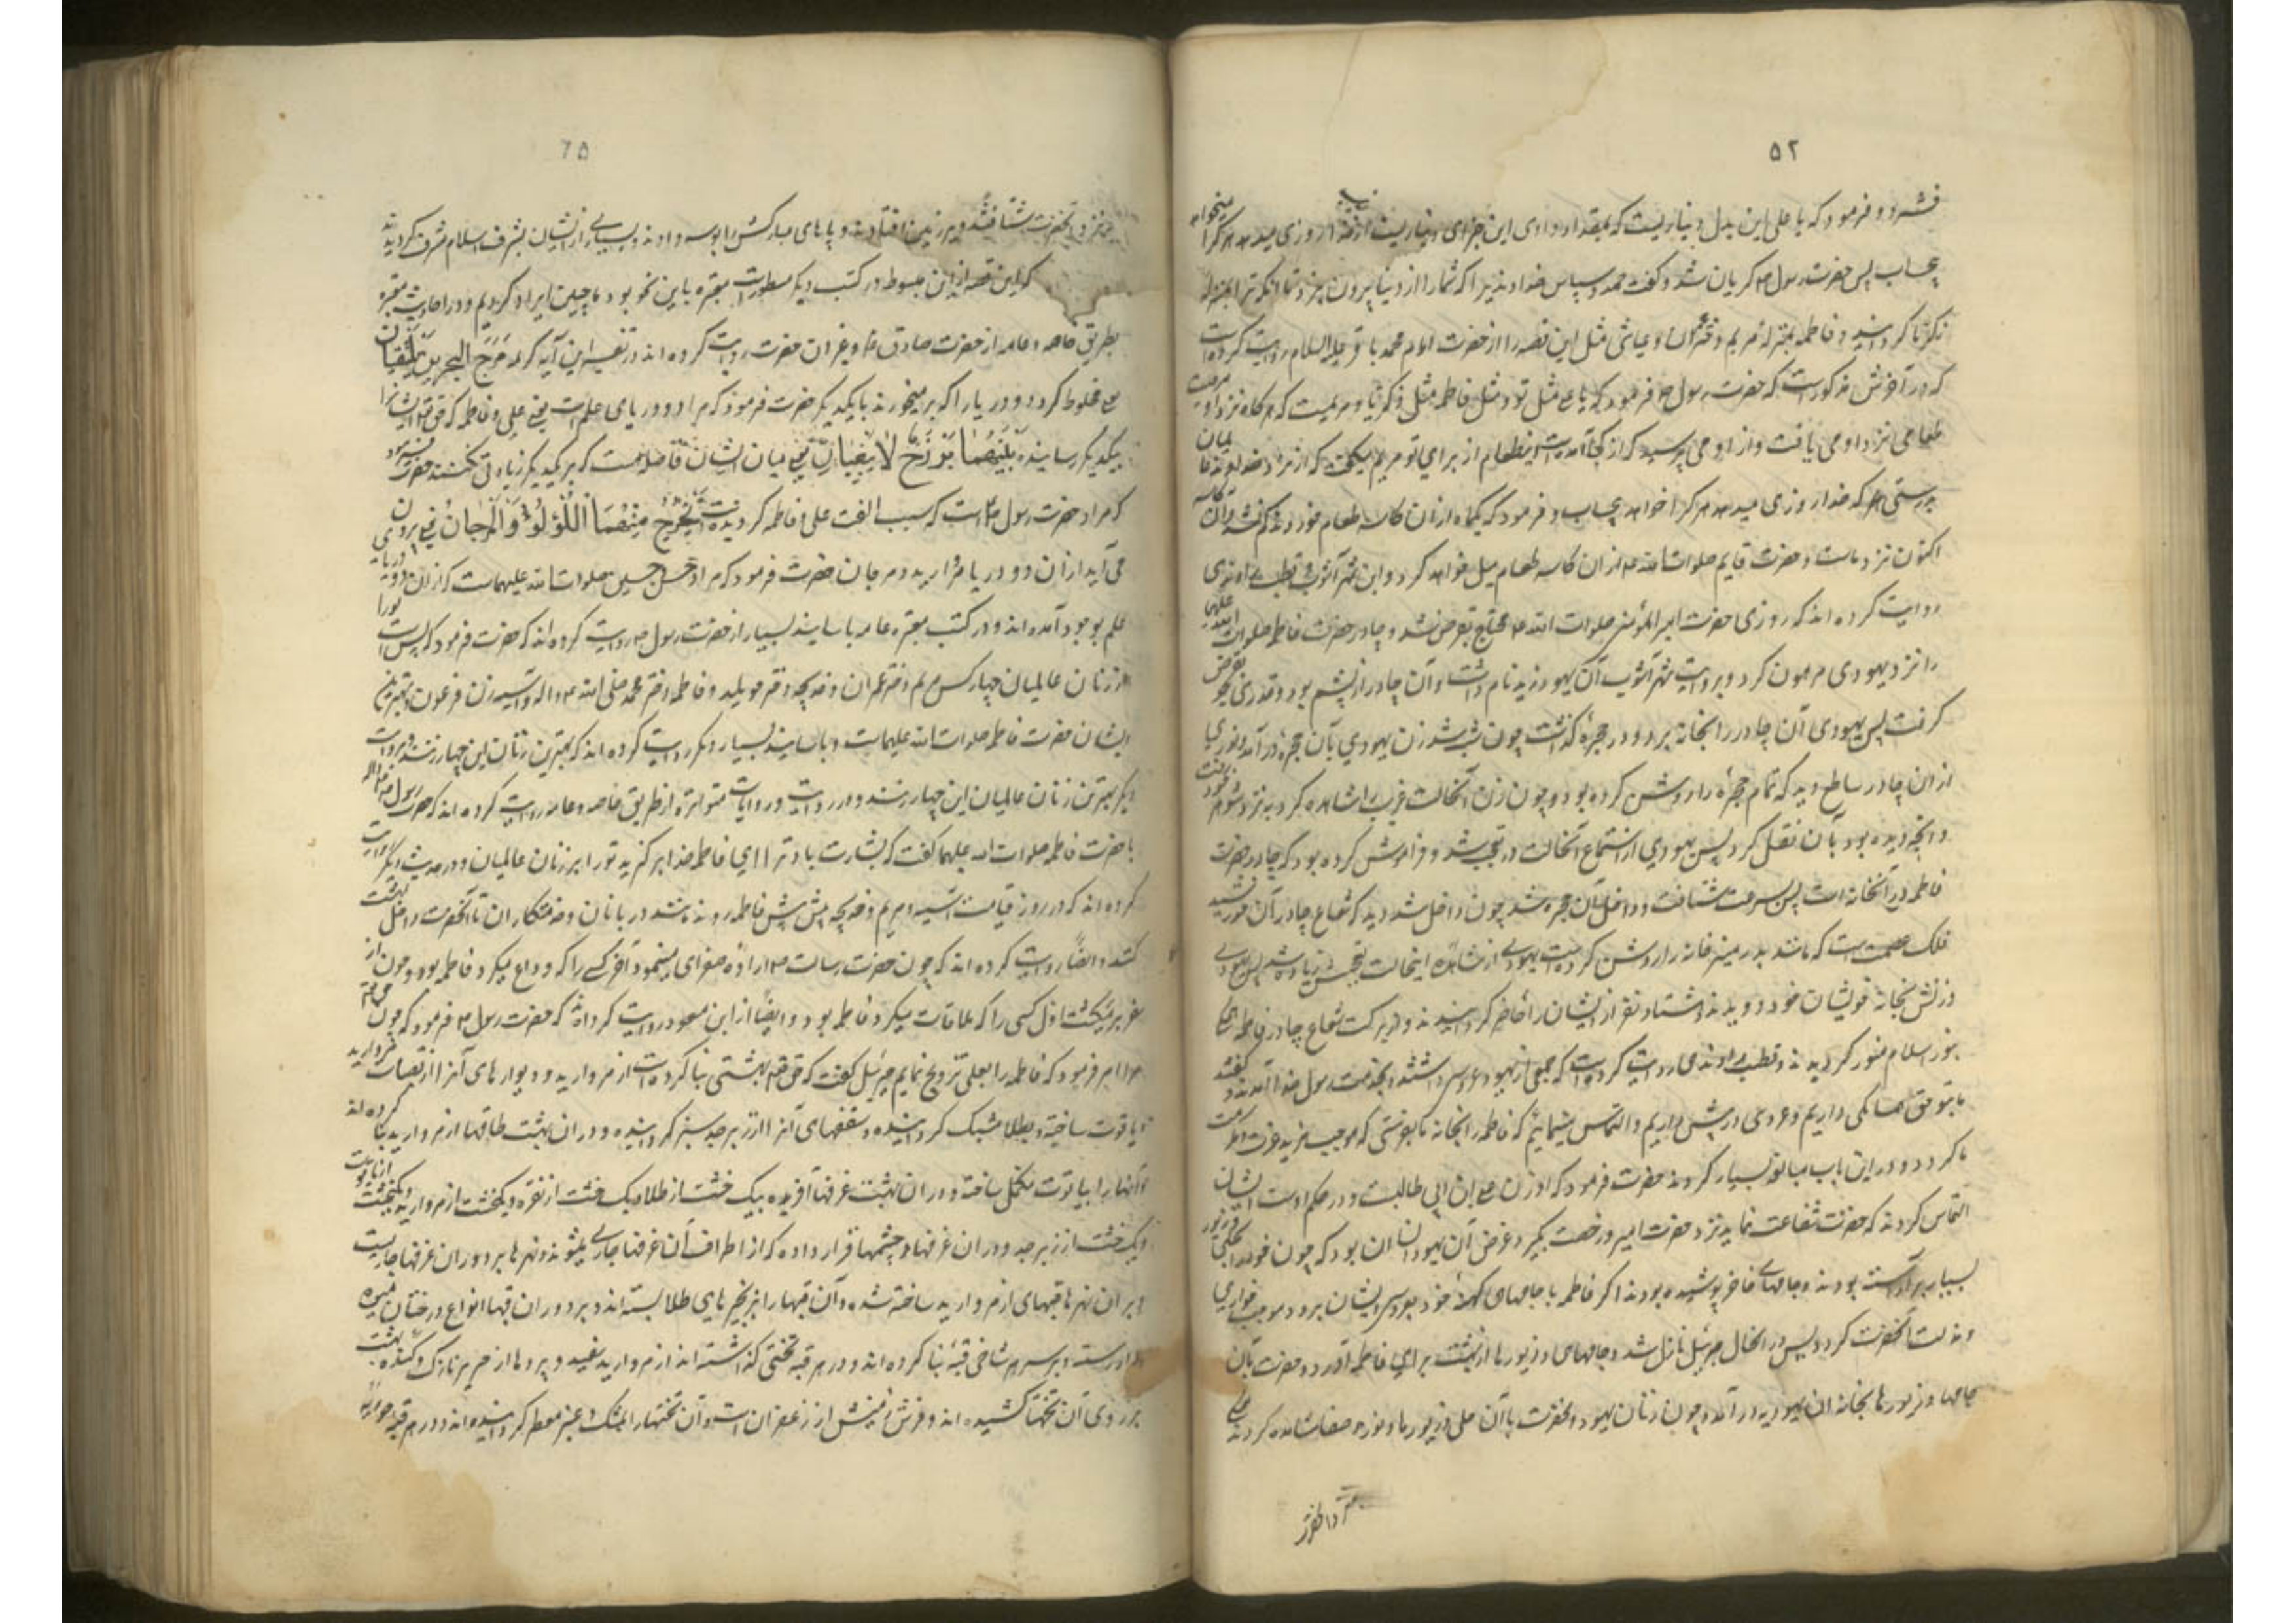 ۵۲
فشرد و فرمود که یا علی این بدل دیناریست که بمقداد دادی این جزای دینار تست از نزد خدا روزی میدهد هر کرا میخواهد
بیحساب پس حضرت رسول ص گریان شد و گفت حمد و سپاس خداوندیرا که شما را از دنیا بیرون نبرد تا آنکه ترا بمنزله
زکریا گردانید و فاطمه بمنزله مریم دختر عمران و عیاشی مثل این قصه را از حضرت امام محمد باقر علیه السلام روایت کرده است
که در آخرش مذکور است که حضرت رسول ص فرمود که یا علی مثل تو و مثل فاطمه مثل زکریا و مریمست که هرگاه نزد او میرفت
طعامی نزد او می یافت و از او می پرسید که از کجا آمده است این طعام از برای تو مریم میگفت که از نزد خداوند عالمیان
بدرستی که خدا روزی میدهد هر کرا خواهد بیحساب و فرمود که یکماه از آن کاسه طعام خوردند و کم نشد و آن کاسه
اکنون نزد ماست و حضرت قایم صلوات الله علیه از آن کاسه طعام میل خواهد کرد و ابن شهر آشوب و قطب راوندی
روایت کرده اند که روزی حضرت امیر المؤمنین صلوات الله علیه محتاج بقرض شد و چادر حضرت فاطمه صلوات الله علیها
را نزد یهودی مرهون کرد و بروایت شهر آشوب آن یهود زید نام داشت و آن چادر از پشم بود و قدری جو بقرض
گرفت پس یهودی آن چادر را بخانه برد و در حجره گذاشت چون شب شد زن یهودی بآن حجره درآمد و نوری
از آن چادر ساطع دید که تمام حجره را روشن کرده بود و چون زن آنحالت غریب را مشاهده کرد به نزد شوهر خود رفت
و آنچه دیده بود بآن نقل کرد پس یهودی از استماع آنحالت در تعجب شد و فراموش کرده بود که چادر حضرت
فاطمه در آنخانه است پس بسرعت شتافت و داخل آن حجره شد چون داخل شد دید که شعاع چادر آن خورشید
فلک عصمت است که مانند بدر منیر خانه را روشن کرده است یهودی از مشاهده اینحالت تعجبش زیاده شد پس یهودی
و زنش بخانه خویشان خود دویدند و هشتاد نفر از ایشان را حاضر گردانیدند و از برکت شعاع چادر فاطمه همگی
بنور اسلام منور گردیدند و قطب راوندی روایت کرده است که جمعی از یهود عروسی داشتند بخدمت رسول خدا آمدند و گفتند
ما بتو حق همسایگی داریم و عروسی در پیش داریم و التماس مینمائیم که فاطمه را بخانه ما بفرستی که موجب مزید عزت و کرامت
ما گردد و در این باب مبالغه بسیار کردند حضرت فرمود که او زن علی بن ابی طالبست و در حکم اوست ایشان
التماس کردند که حضرت شفاعت نماید نزد حضرت امیر و رخصت بگیرد و غرض آن یهودان آن بود که چون خود را بحلی و زیور
بسیار آراسته بودند و جامهای فاخر پوشیده بودند اگر فاطمه با جامهای کهنه خود بعروسی ایشان برود موجب خواری
و مذلت آنحضرت گردد پس در الحال جبرئیل نازل شد و جامهای و زیورها از بهشت برای فاطمه آورد و حضرت بآن
جامها و زیورها بخانه آن یهودیه درآمد و چون زنان یهود آنحضرت با آن حلی و زیورها و نور و صفا مشاهده کردند همگی
۶۵
نزد آنحضرت شتافتند و بر زمین افتادند و پاهای مبارکش را بوسه دادند و بسیاری از ایشان بشرف اسلام مشرف گردیدند
که این قصه از این مبسوط در کتب دیگر مسطور است معتبره باین نحو بود ما چنین ایراد کردیم و در احادیث معتبره
بطریق خاصه و عامه از حضرت صادق ع و غیر آن حضرت روایت کرده اند در تفسیر این آیه کریمه مَرَجَ البحرین یلتقیان
یعنی مخلوط کرد دو دریا را که بر میخورند بایکدیگر حضرت فرمود که مراد دو دریای علمست یعنی علی و فاطمه که حق تعالی ایشان را
بیکدیگر رسانیده بَیْنَهُمَا بَرْزَخٌ لَا یَبْغِیَانِ یعنی میان ایشان فاصله هست که بر یکدیگر زیادتی نکنند حضرت فرمود
که مراد حضرت رسول ص است که سبب الفت علی و فاطمه گردیده است یَخْرُجُ مِنْهُمَا اللُّؤْلُؤُ وَالْمَرْجَانُ یعنی بیرون
می آید از آن دو دریا مروارید و مرجان حضرت فرمود که مراد حسن و حسین صلوات الله علیهماست که از آن دو دریای
علم بوجود آمده اند و در کتب معتبره عامه باسانید بسیار از حضرت رسول ص روایت کرده اند که حضرت فرمود که بس است تو را
از زنان عالمیان چهار کس مریم دختر عمران و خدیجه دختر خویلد و فاطمه دختر محمد صلی الله علیه و آله و آسیه زن فرعون و بهترین
ایشان حضرت فاطمه صلوات الله علیهاست و باسانید بسیار دیگر روایت کرده اند که بهترین زنان این چهار زنند و بروایت
دیگر بهترین زنان عالمیان این چهار زنند و در روایات متواتره از طریق خاصه و عامه روایت کرده اند که حضرت رسول ص و آله
با حضرت فاطمه صلوات الله علیها گفت که بشارت باد ترا ای فاطمه خدا برگزید تو را بر زنان عالمیان و در حدیث دیگر روایت
کرده اند که در روز قیامت آسیه و مریم و خدیجه پیش پیش فاطمه روند مانند دربانان و خدمتکاران تا آنحضرت داخل بهشت
کنند و ایضاً روایت کرده اند که چون حضرت رسالت ص اراده سفری مینمود آخر کسی را که وداع میکرد فاطمه بود و چون از
سفر بر میگشت اول کسی را که ملاقات میکرد فاطمه بود و ایضاً از ابن مسعود روایت کرده اند که حضرت رسول ص فرمود که چون حق تعالی
مرا امر فرمود که فاطمه را بعلی تزویج نمایم جبرئیل گفت که حق تعالی بهشتی بنا کرده است از مروارید و دیوارهای آنرا از قصبات مروارید
و یاقوت ساخته و بطلا مشبک گردانیده و سقفهای آنرا از زبرجد سبز گردانیده و در آن بهشت طاقها از مروارید بنا کرده اند
و آنها را بیاقوت مکلل ساخته و در آن بهشت غرفها آفریده بیک خشت از طلا و یک خشت از نقره و یکخشت از مروارید و یکخشت از یاقوت
و یک خشت از زبرجد و در آن غرفها و چشمها قرار داده که از اطراف آن غرفها جاری میشوند و نهرها بر دور آن غرفها جاریست
و بر آن نهرها قبهای از مروارید ساخته شده و آن قبها را بزنجیرهای طلا بسته اند و بر دور آن قبها انواع درختان میوه
رسته و بر سر هر شاخی قبه بنا کرده اند و در هر قبه تختی گذاشته اند از مروارید سفید و پردها از حریر نازک و گنده بهشت
بر روی آن تختها کشیده اند و فرش زمینش از زعفران است و آن تختها را بمشک و عنبر معطر گردانیده اند و در هر قبه حوریه